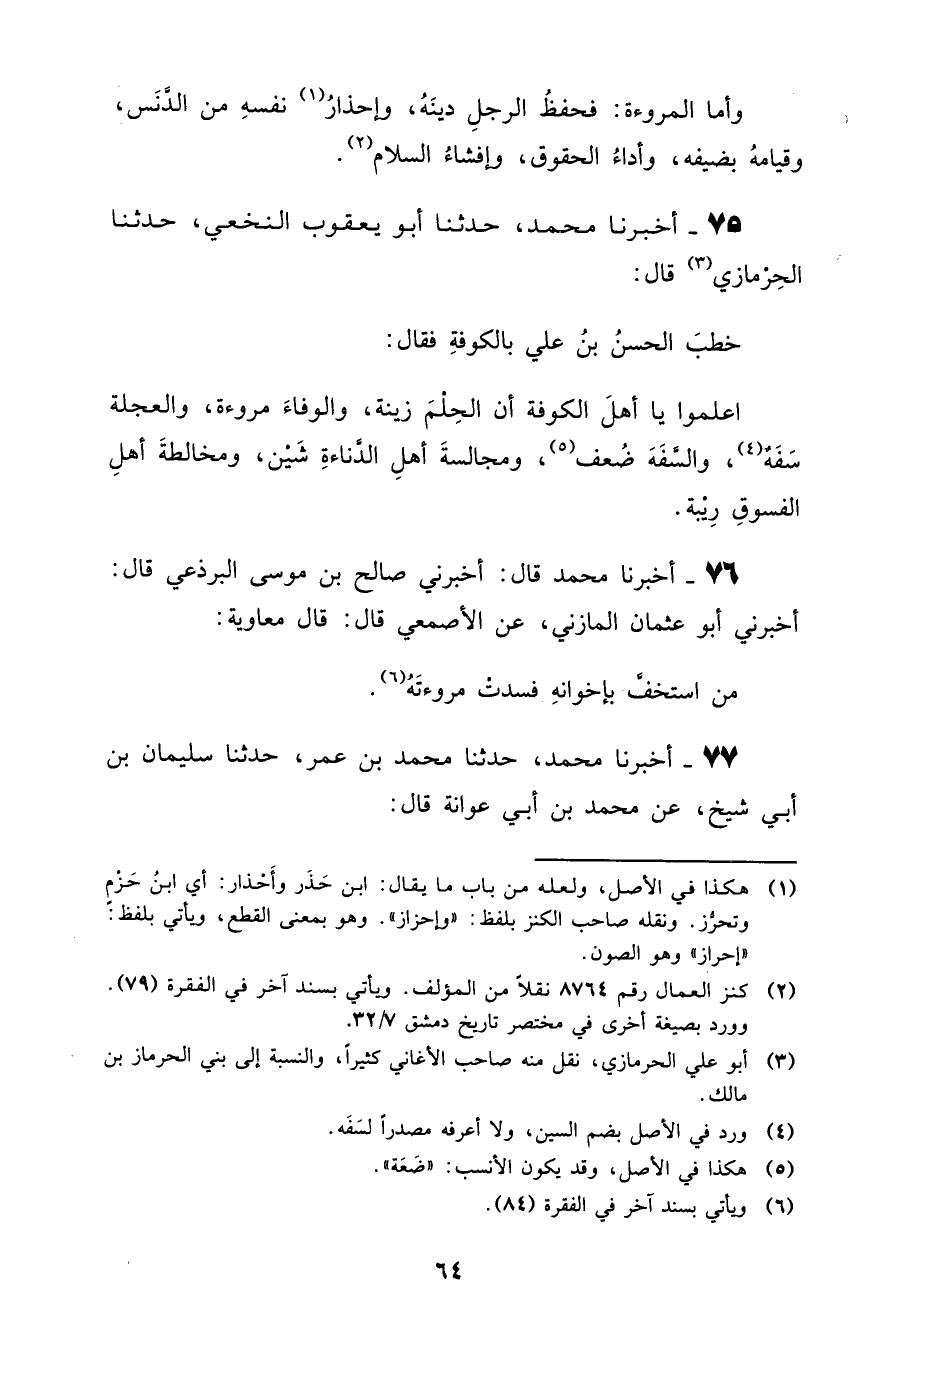 وأما المروءة: فحفظُ الرجلِ دينَهُ، وإحذارُ(١) نفسهِ من الدَّنَس،
وقيامهُ بضيفه، وأداءُ الحقوق، وإفشاءُ السلام(٢).
٧٥ ـ أخبرنا محمد، حدثنا أبو يعقوب النخعي، حدثنا
الحِرْمازي(٣) قال:
خطبَ الحسنُ بنُ علي بالكوفةِ فقال:
اعلموا يا أهلَ الكوفة أن الحِلْمَ زينة، والوفاءَ مروءة، والعجلة
سَفَهٌ(٤)، والسَّفَهَ ضُعف(٥)، ومجالسةَ أهلِ الدَّناءةِ شَيْن، ومخالطةَ أهلِ
الفسوقِ رِيْبة.
٧٦ ـ أخبرنا محمد قال: أخبرني صالح بن موسى البرذعي قال:
أخبرني أبو عثمان المازني، عن الأصمعي قال: قال معاوية:
من استخفَّ بإخوانهِ فسدتْ مروءتَهُ(٦).
٧٧ ـ أخبرنا محمد، حدثنا محمد بن عمر، حدثنا سليمان بن
أبي شيخ، عن محمد بن أبي عوانة قال:
(١) هكذا في الأصل، ولعله من باب ما يقال: ابن حَذَر وأَحْذار: أي ابنُ حَزْمٍ
وتحرُّز. ونقله صاحب الكنز بلفظ: «وإحزاز». وهو بمعنى القطع، ويأتي بلفظ:
«إحراز» وهو الصون.
(٢) كنز العمال رقم ٨٧٦٤ نقلاً من المؤلف. ويأتي بسند آخر في الفقرة (٧٩).
وورد بصيغة أخرى في مختصر تاريخ دمشق ٣٢/٧.
(٣) أبو علي الحرمازي، نقل منه صاحب الأغاني كثيراً، والنسبة إلى بني الحرماز بن
مالك.
(٤) ورد في الأصل بضم السين، ولا أعرفه مصدراً لسَفَه.
(٥) هكذا في الأصل، وقد يكون الأنسب: «ضَعَة».
(٦) ويأتي بسند آخر في الفقرة (٨٤).
٦٤